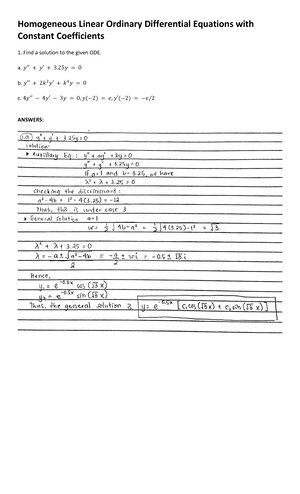 Homogeneous Linear Ordinary Differential Equations with
Constant Coefficients
1. Find a solution to the given ODE.
a. y'' + y' + 3.25y = 0
b. y'' + 2k²y' + k⁴y = 0
c. 4y'' − 4y' − 3y = 0, y(−2) = e, y'(−2) = −e/2
ANSWERS:
1.a) y'' + y' + 3.25y = 0
Solution:
▸ Auxiliary Eq.: y'' + ay' + by = 0
y'' + y' + 3.25y = 0
If a=1 and b=3.25, we have
λ² + λ + 3.25 = 0
Checking the discriminant:
a² - 4b = 1² - 4(3.25) = -12
Thus, this is under case 3.
▸ General Solution a=1
w = 1/2 √4b-a² = 1/2 √4(3.25)-1² = √3
λ² + λ + 3.25 = 0
λ = -a ± √a²-4b / 2 = -a/2 ± wi = -0.5 ± √3 i
Hence,
y₁ = e^-0.5x cos (√3 x)
y₂ = e^-0.5x sin (√3 x)
Thus, the general solution is y = e^-0.5x [C₁ cos (√3 x) + C₂ sin (√3 x)]